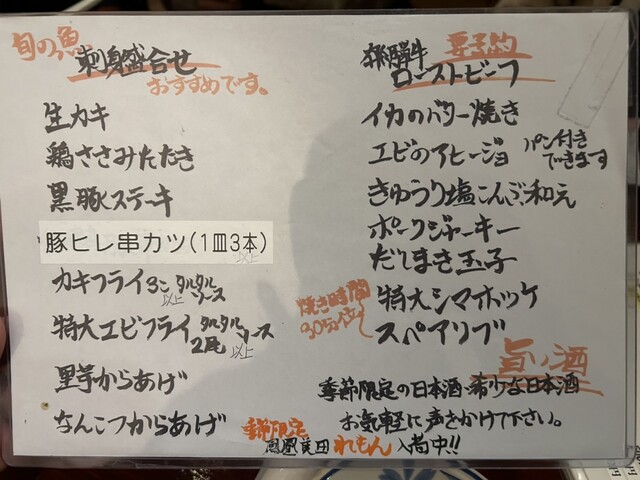 旬の魚
刺身盛合せ
おすすめです。
生カキ
鶏ささみたたき
黒豚ステーキ
豚ヒレ串カツ(1皿3本)
以上
カキフライ3コ タルタルソース
以上
特大エビフライ タルタルソース
2尾
以上
里芋からあげ
なんこつからあげ
飛騨牛 要予約
ローストビーフ
イカのバター焼き
エビのアヒージョ パン付きできます
きゅうり塩こんぶ和え
ポークジャーキー
だしまき玉子
特大シマホッケ
焼き時間
30分位
スペアリブ
旨い酒
季節限定の日本酒・希少な日本酒
お気軽に声をかけて下さい。
季節限定
れもん入荷中!!